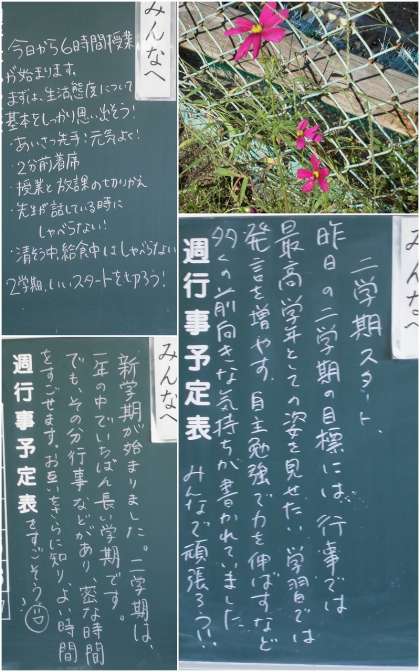 みんなへ
今日から6時間授業
が始まります。
まずは、生活態度について
基本をしっかり思い出そう!
・あいさつ先手:元気よく!
・2分前着席
授業と放課の切りかえ
・先生が話している時に
しゃべらない!
・清そう中、給食中はしゃべらない
2学期、いいスタートを切ろう!
みんなへ
二学期スタート、
昨日の二学期の目標には、行事では
最高学年としての姿を見せたい、学習では
発言を増やす、自主勉強で力を伸ばすなど
多くの前向きな気持ちが書かれていました。
みんなで頑張ろう!!
週行事予定表
みんなへ
新学期が始まりました。二学期は、
一年の中でいちばん長い学期です。
でも、その分行事などがあり、密な時間
をすごせます。お互いをさらに知り、よい時間
をすごそう
週行事予定表